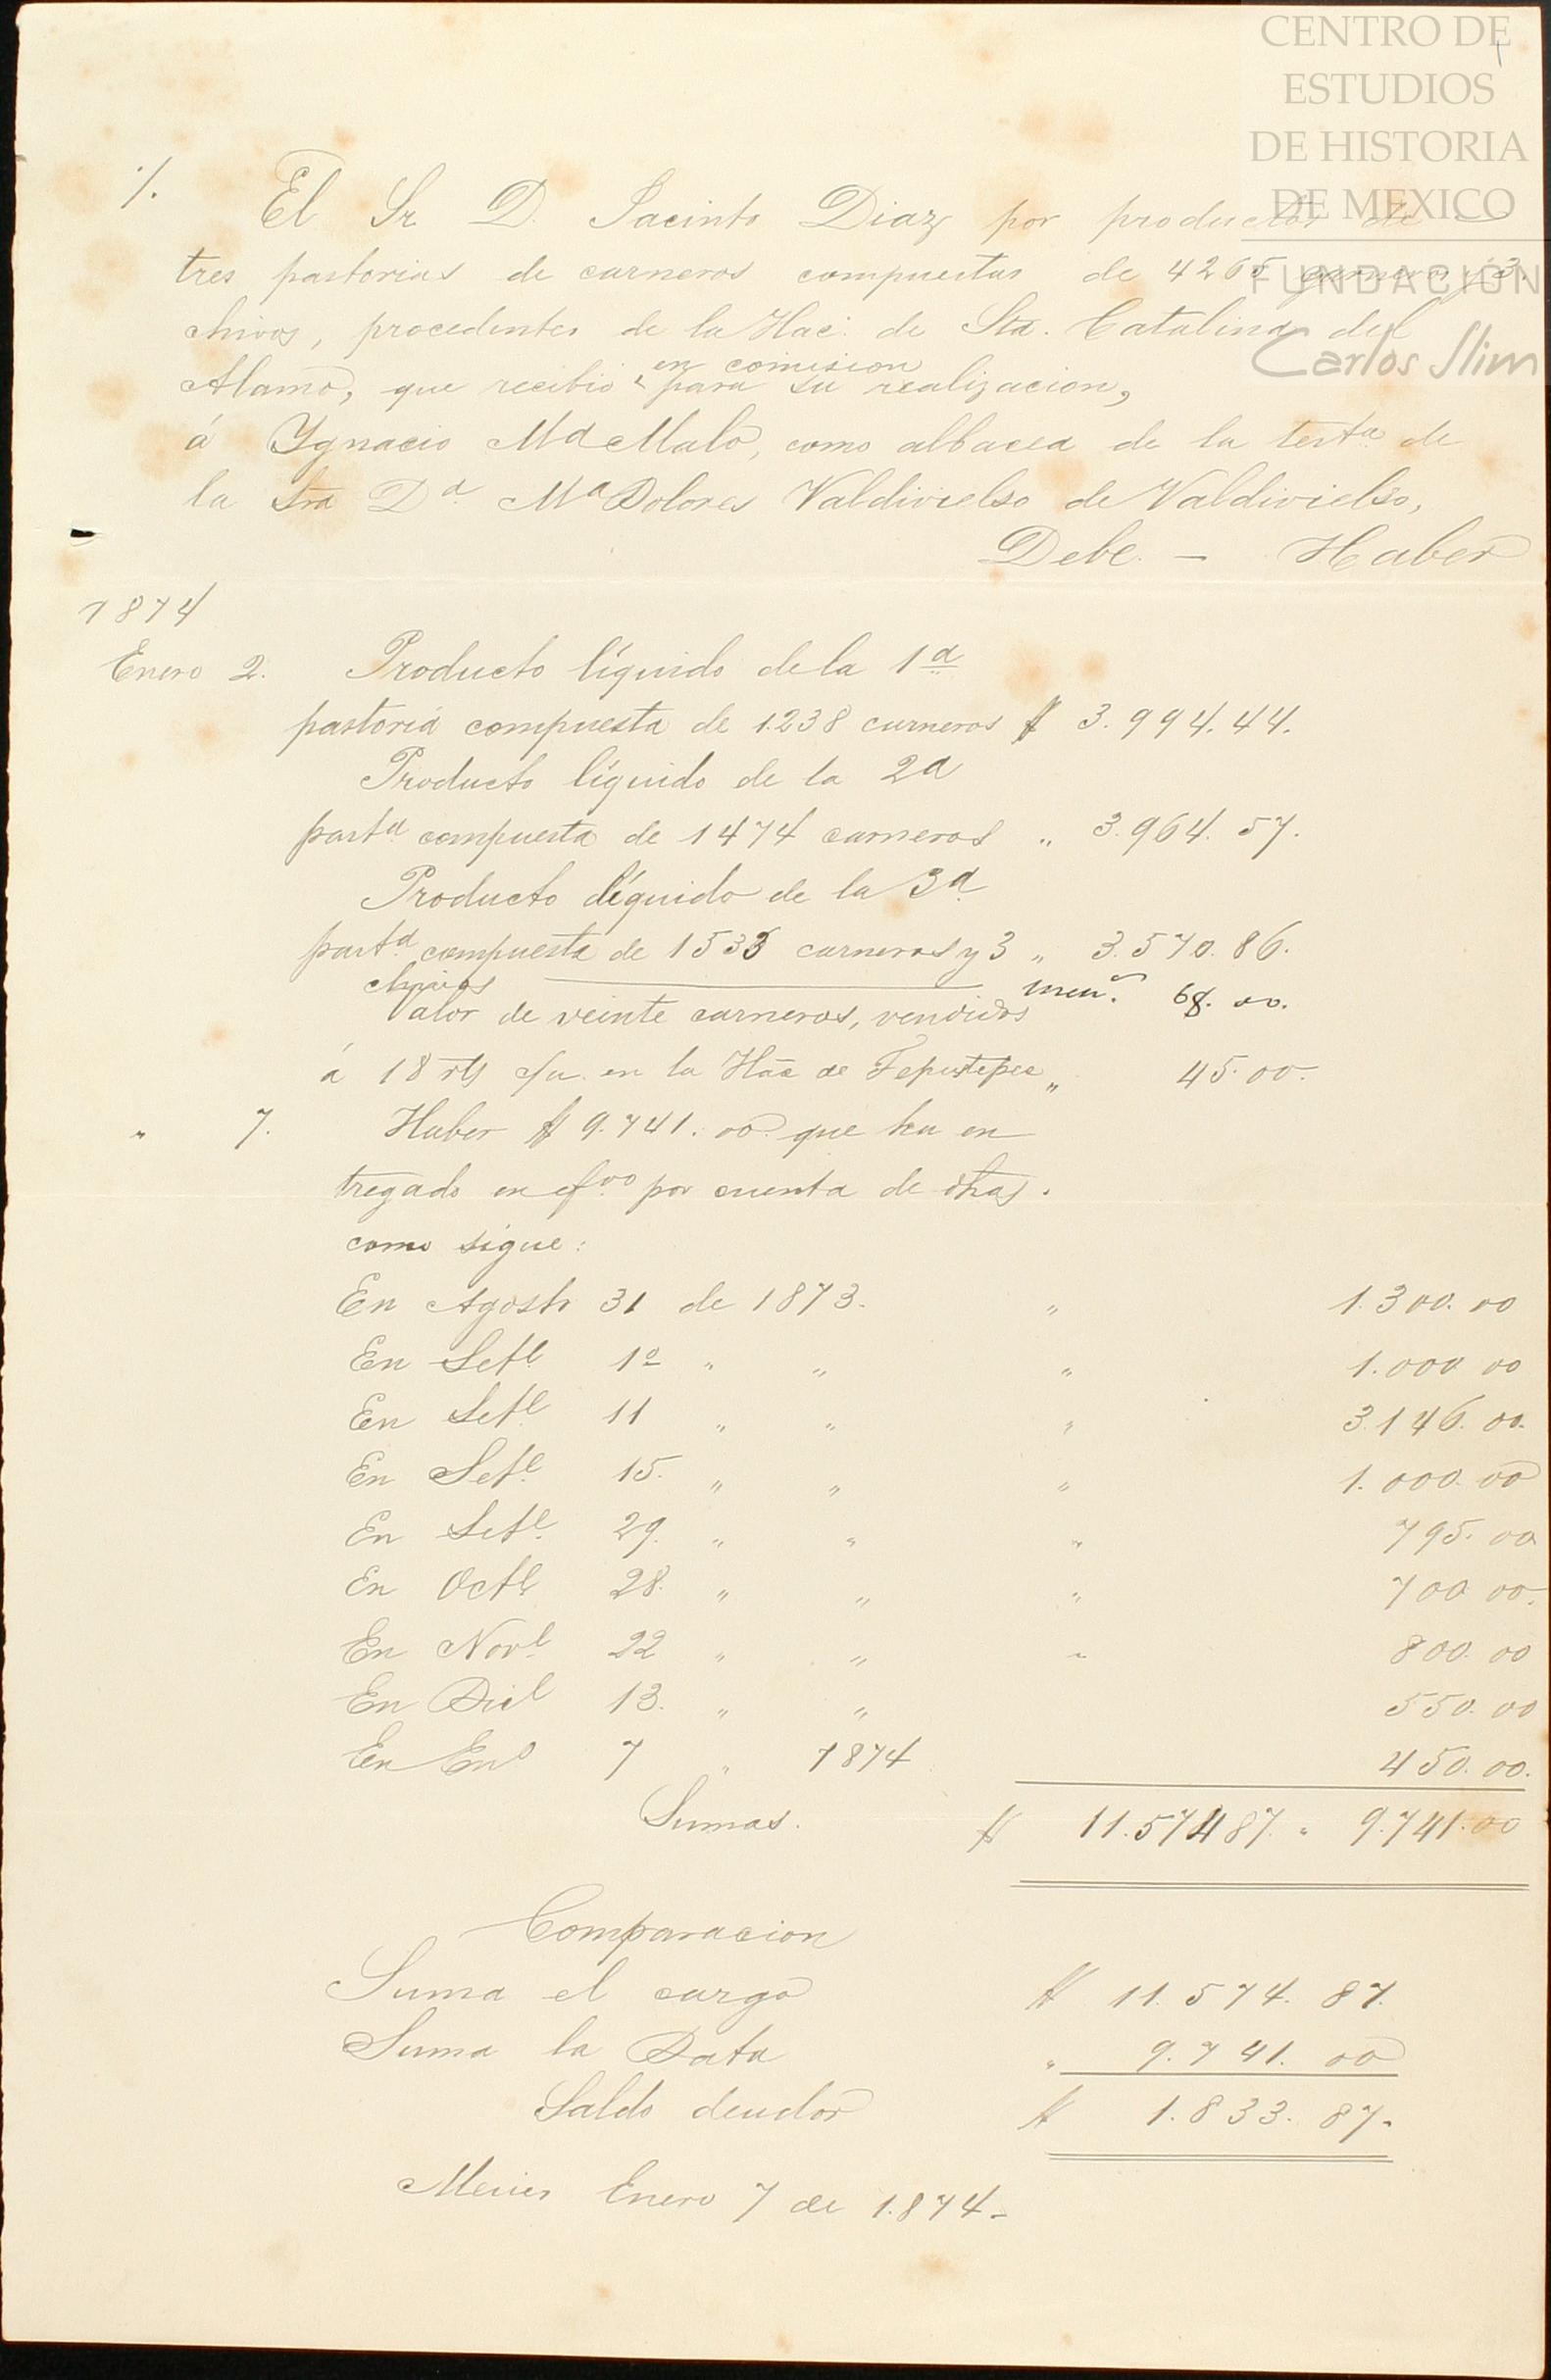 CENTRO DE
ESTUDIOS
DE HISTORIA
DE MEXICO
FUNDACIÓN
Carlos Slim
%. El Sr. D. Jacinto Diaz por productos de
tres pastorias de carneros compuestas de 4265 carneros y 3.
chivos, procedentes de la Hac.ª de Sta. Catalina del
Alamo, que recibió en comision para su realizacion,
á Ygnacio Mª Malo, como albacea de la testª de
la Sra Dª Mª Dolores Valdivielso de Valdivielso,
Debe. — Haber
1874
Enero 2. Producto líquido de la 1ª
pastoria compuesta de 1.238 carneros $ 3.994.44.
Producto líquido de la 2ª
pastª compuesta de 1474 carneros „ 3.964.57.
Producto líquido de la 3ª
pastª compuesta de 1533 carneros y 3 „ 3.570.86.
chivos
Valor de veinte carneros, vendidos
á 18 rs c/u. en la Hac de Tepustepec „ 45.00.
„ 7. Haber $ 9.741.00. que ha en
tregado en efvo por cuenta de dhas.
como sigue:
En Agosto 31 de 1873. „ 1.300.00
En Sete 1º „ „ „ 1.000 00
En Sete 11 „ „ „ 3.146.00.
En Sete 15. „ „ „ 1.000.00
En Sete 29. „ „ „ 795.00
En Octe 28. „ „ „ 700 00.
En Nove 22 „ „ „ 800.00
En Dice 13. „ „ 550.00
En Eno 7 „ 1874 450.00.
Sumas. $ 11.574 87. „ 9.741.00
Comparacion
Suma el cargo $ 11.574.87.
Suma la Data „ 9.741.00
Saldo deudor $ 1.833.87.
Enero 7 de 1.874.